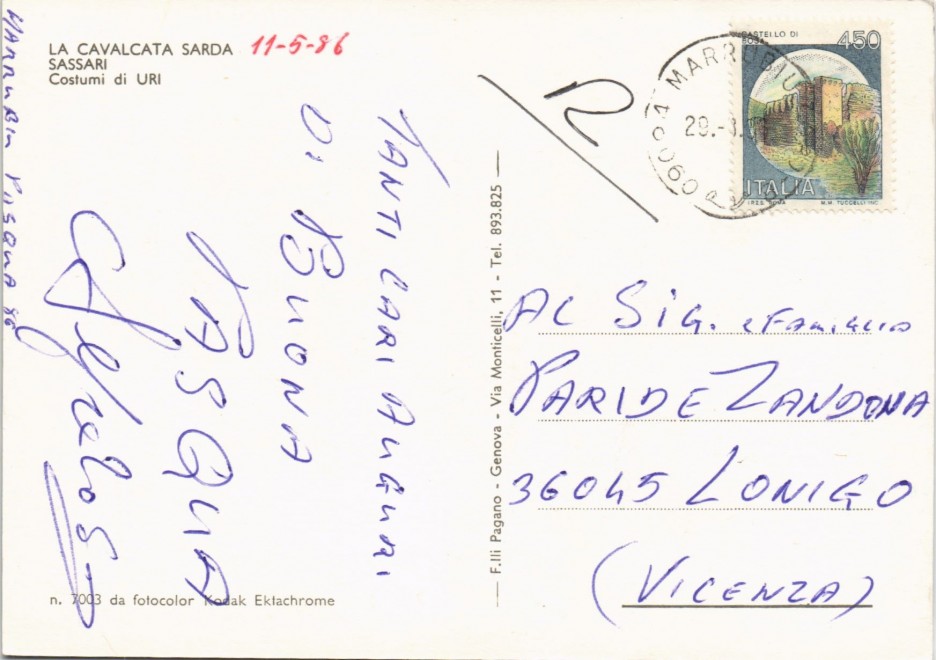 LA CAVALCATA SARDA
SASSARI
Costumi di URI
11-5-86
MARRUBIU PASQUA 86
TANTI CARI AUGURI
DI BUONA
PASQUA
n. 7003 da fotocolor Kodak Ektachrome
F.lli Pagano - Genova - Via Monticelli, 11 - Tel. 893.825
R
09094 MARRUBIU
29.-3.
CASTELLO DI
450
ITALIA
I.P.Z.S. ROMA
M.M. TUCCELLI INC.
AL SIG. e Famiglia
PARIDE ZANDONA
36045 LONIGO
(VICENZA)